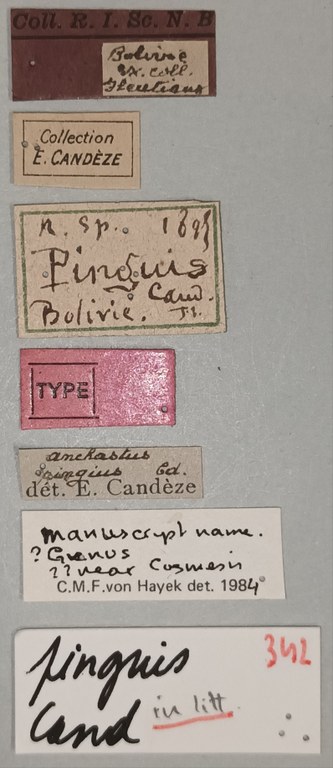 Coll. R. I. Sc. N. B
Bolivie
ex. coll.
Fleutiaux
Collection
E. CANDÈZE
n. sp. 1895
Pinguis
Cand.
Bolivie.
TYPE
anchastus
pinguis Cd.
dét. E. Candèze
manuscript name.
? Genus
?? near Cosmesis
C.M.F. von Hayek det. 1984
pinguis 342
Cand in litt.